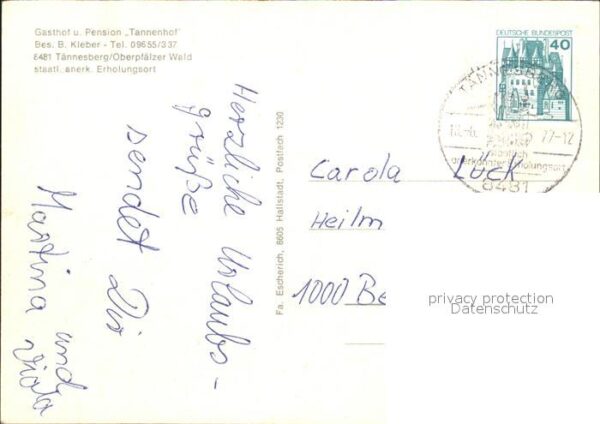 Gasthof u. Pension „Tannenhof"
Bes. B. Kleber - Tel. 09655/337
8481 Tännesberg/Oberpfälzer Wald
staatl. anerk. Erholungsort
Herzliche Urlaubs-
grüße
sendet Dir
Martina und
Viola
Fa. Escherich, 8605 Hallstadt, Postfach 1230
DEUTSCHE BUNDESPOST
40
TÄNNESBERG
77-12
staatlich
anerkannter Erholungsort
8481
Carola Lück
Heilm
1000 Be
privacy protection
Datenschutz